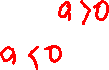 a>0
a<0